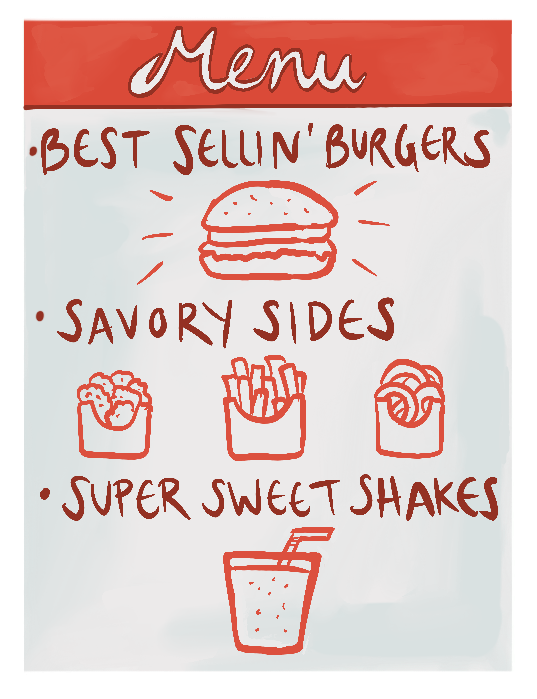 Menu
• BEST SELLIN' BURGERS
• SAVORY SIDES
• SUPER SWEET SHAKES